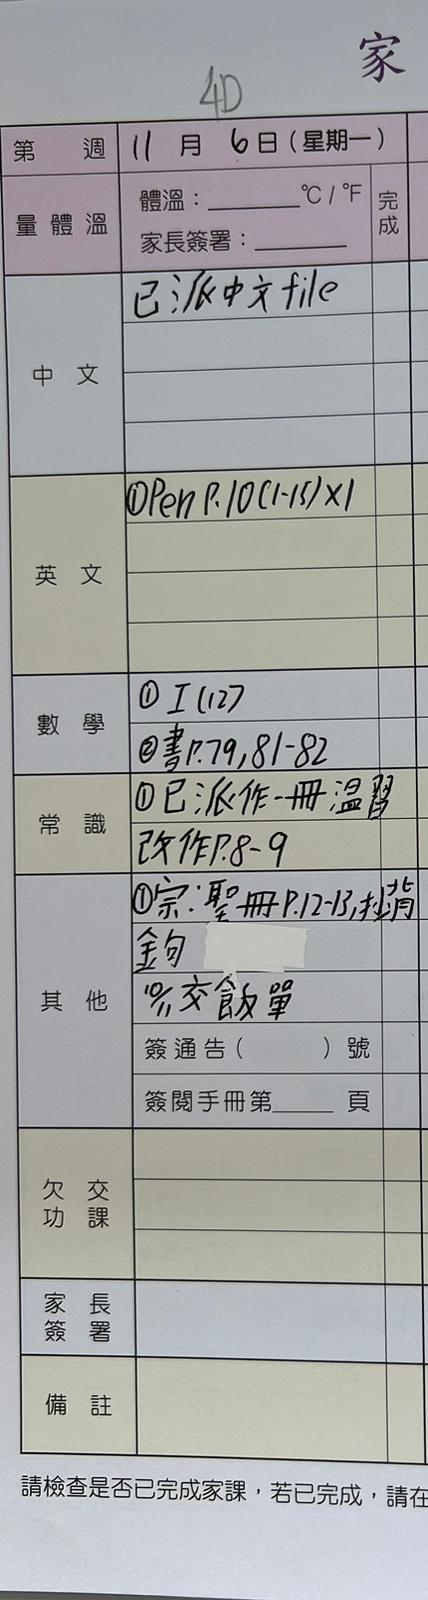 家
4D
第 週 11 月 6 日（星期一）
量體溫 體溫：______℃ / ℉ 完成
家長簽署：______
中文 已派中文file
英文 ①Pen P.10(1-15)×1
數學 ① I (12)
②書P.79,81-82
常識 ①已派作一冊溫習
改作P.8-9
其他 ①宗:聖冊P.12-13,抄背
金句
交飯單
簽通告（ ）號
簽閱手冊第____頁
欠交功課
家長簽署
備註
請檢查是否已完成家課，若已完成，請在